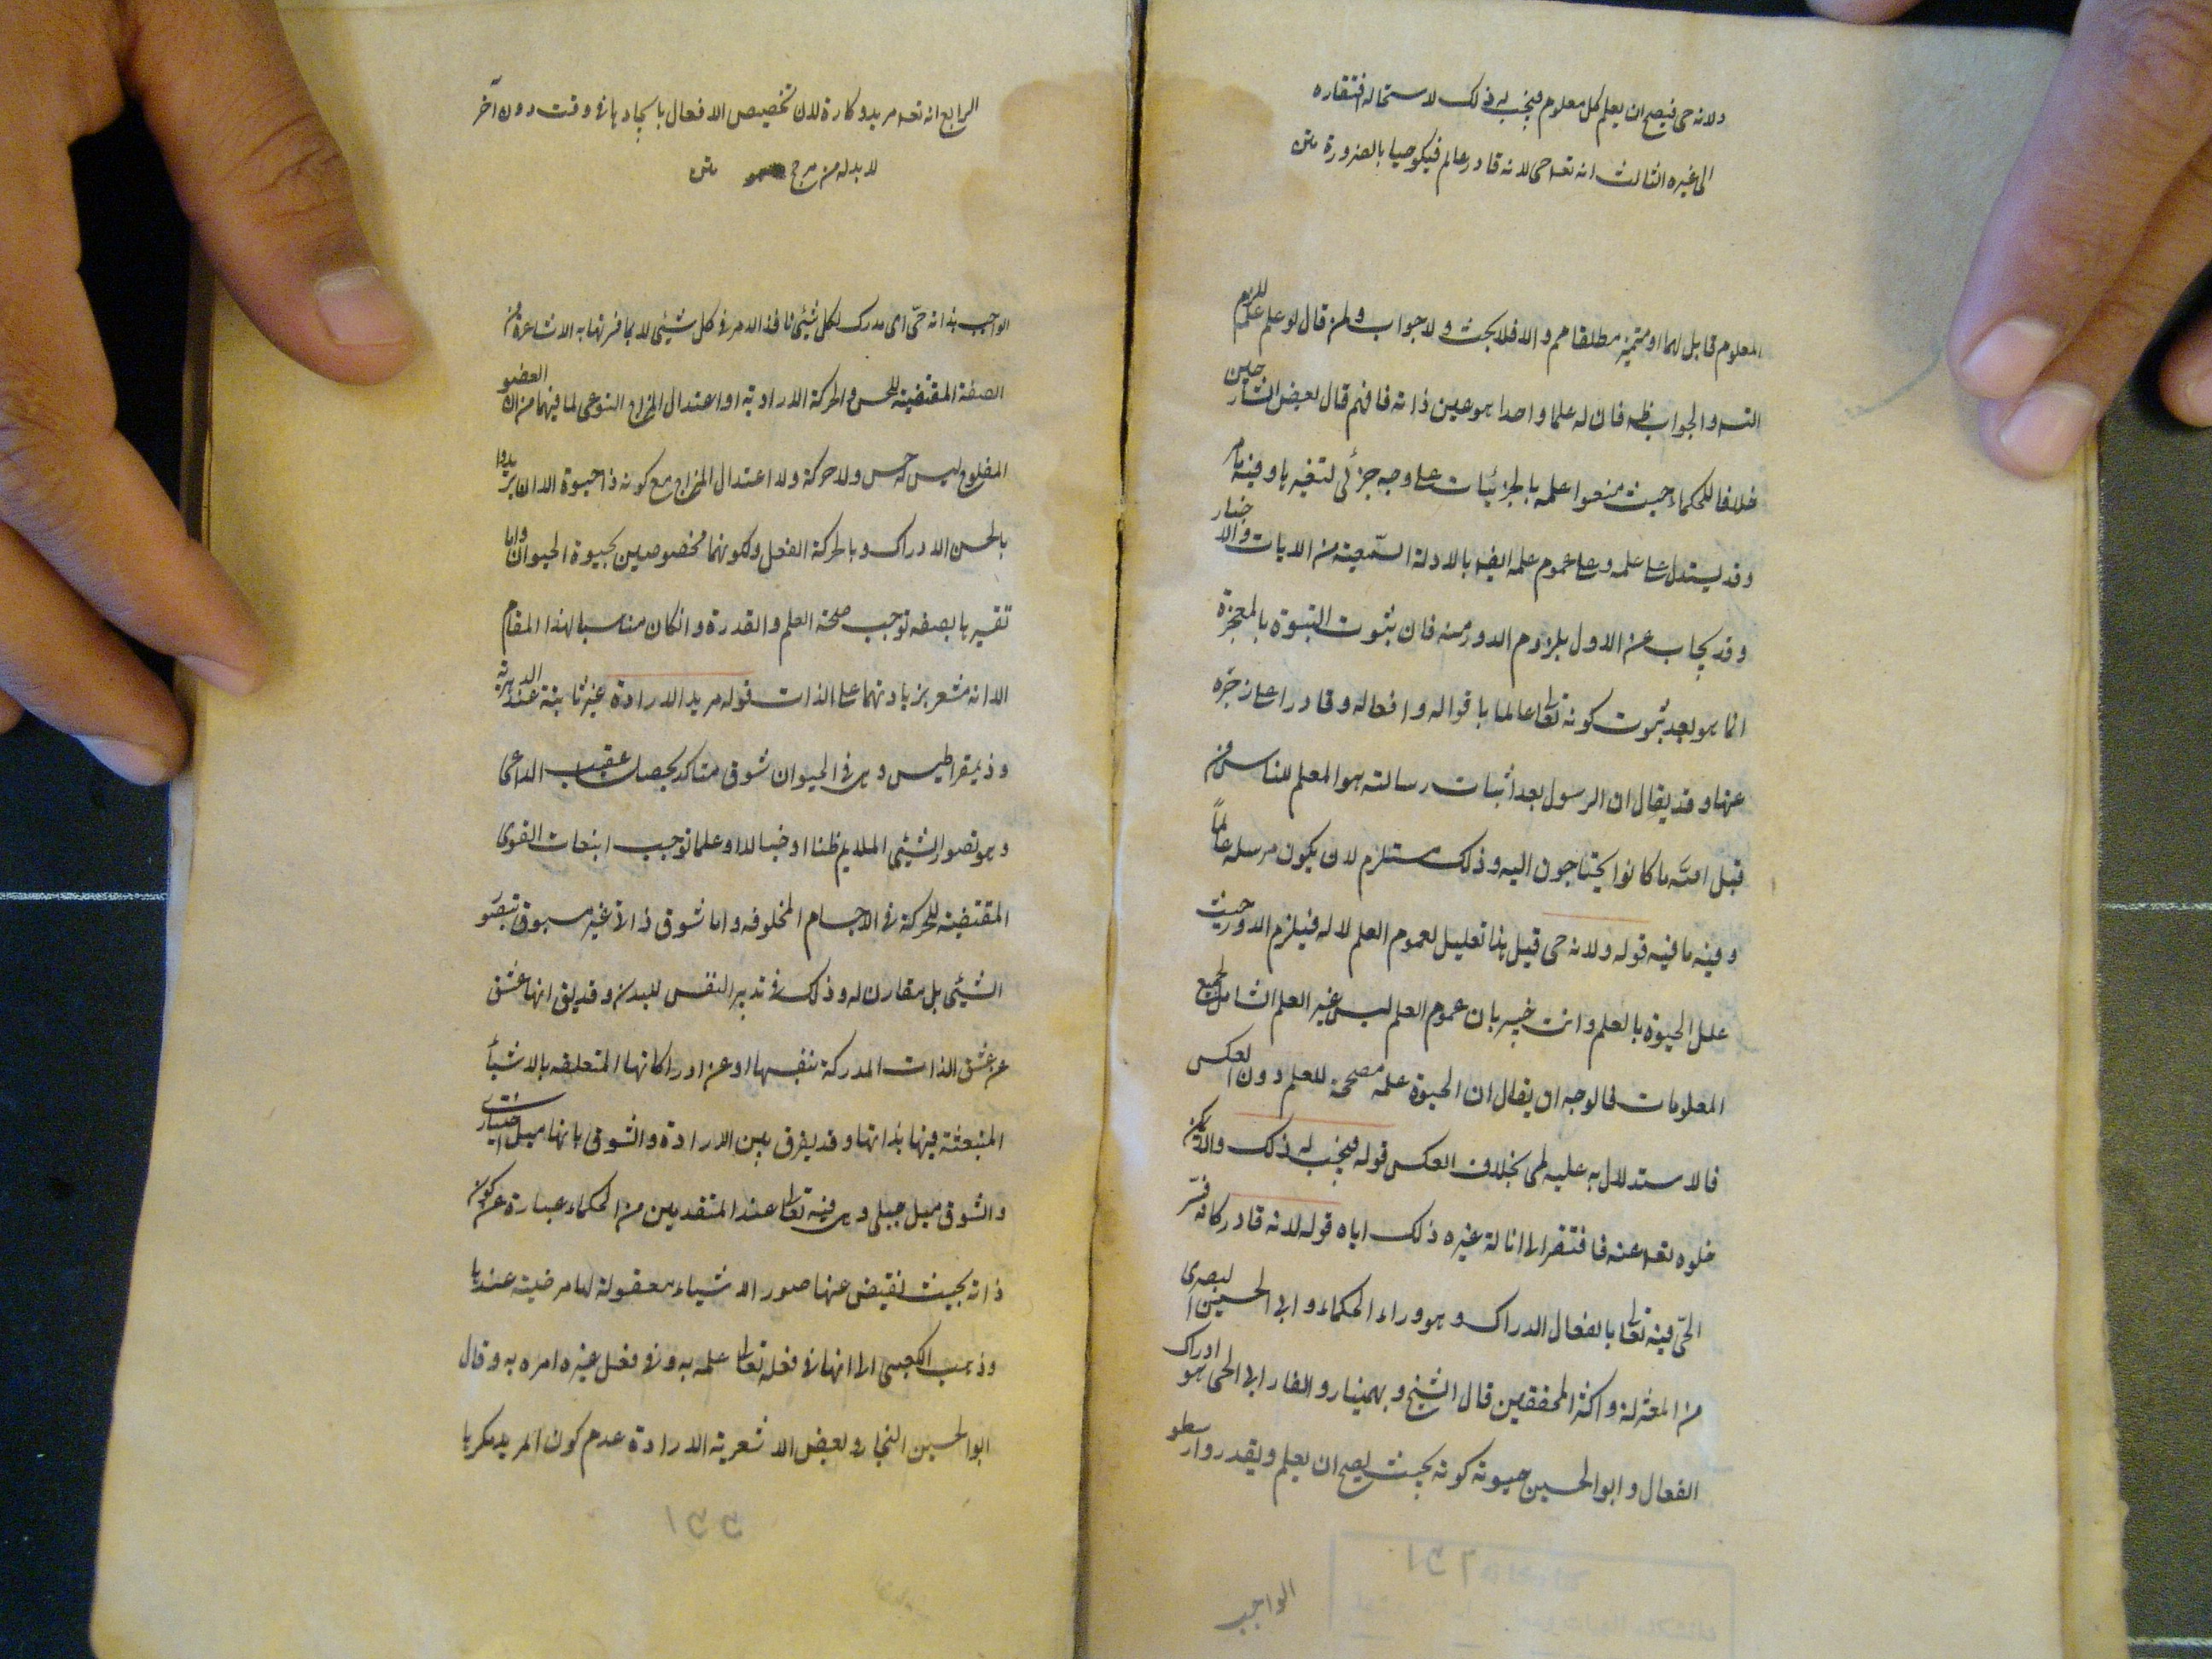 ولانه حى فيصح ان يعلم كل معلوم فيجب له ذلك لاستحالة افتقاره
الى غيره الثالث انه تعه حى لانه قادر عالم فيكو حيا بالضرورة متن
المعلوم قابل لهما او متميز مطلقا هم والا فلا بحث ولا جواب ولمن قال لو علم علم
التسه والجواب ظه فان له علما واحدا هو عين ذاته فافهم قال بعض الشارحين
خلافا للحكماء حيث منعوا علمه بالجزئيات على وجه جزئى لتغيرها وفيه ما مر
وقد يستدل على علمه وعلى عموم علمه ايضا بالادلة السمعية من الايات والاخبار
وقد يجاب عن الاول بلزوم الدور منه فان ثبوت النبوة بالمعجزة
انما هو بعد ثبوت كونه تعالى عالما باقواله وافعاله وقادرا على زجره
عنها وقد يقال ان الرسول بعد اثبات رسالته هو المعلم للناس من
قبل امته ما كانوا يحتاجون اليه وذلك مستلزم لان يكون مرسله عالماً
وفيه ما فيه قوله ولانه حى قيل هذا تعليل لعموم العلم لا له فيلزم الدور حيث
علل الحيوة بالعلم وانت خبير بان عموم العلم ليس غير العلم الشامل لجميع
المعلومات فالوجه ان يقال ان الحيوة علة مصححة للعلم دون العكس
فالاستدلال به عليه لمى بخلاف العكس قوله فيجب له ذلك والا يمكن
خلوه تعه عنه فافتقر الى انالة غيره ذلك اياه قوله لانه قادر كانه فسّر
الحىّ فيه تعالى بالفعال الدراك وهو وراء الحكماء وابى الحسين البصرى
من المعتزلة واكثر المحققين قال الشيخ وبهمنيار والفارابى الحى هو ادراك
الفعال وابو الحسين حيوته كونه بحيث يصح ان يعلم ويقدر وارسطو
الواجب
الرابع انه تعه مريد وكاره لان تخصيص الافعال بايجادها فى وقت دون آخر
لا بد له من مرجح متن
الواجب بذاته حىّ اى مدرك لكل شيئى نافذ الامر فى كل شيئى لا بما فسرتها به الاشاعرة من
الصفة المقتضية للحس والحركة الارادية او اعتدال المزاج النوعى لما فيهما من ان العضو
المفلوج ليس له حس ولا حركة ولا اعتدال المزاج مع كونه ذا حيوة الا ان يريدوا
بالحس الادراك وبالحركة الفعل ولكونهما مخصوصين بحيوة الحيوان واما
تفسيرها بصفه توجب صحة العلم والقدرة وان كان مناسبا لهذا المقام
الا انه مشعر بزيادتهما على الذات قوله مريد الارادة غير ثابتة عند الدهرية
وذيمقراطيس وهى فى الحيوان شوق متاكد يحصل عقيب الداعى
وهو تصور الشيئى الملايم ظنا او خيالا او علما توجب انبعاث القوى
المقتضية للحركة فى الاجسام المخلوفه واما شوق ذاتى غير مسبوق بتصور
الشيئى بل مقارن له وذلك فى تدبير النفس للبدن وقد يق انها عشق
عن عشق الذات المدركة بنفسها او عن ادراكاتها المتعلقه بالاشيأ
المنبعثة فيها بذاتها وقد يفرق بين الارادة والشوق بانها ميل اختيارى
والشوق ميل جبلى وهى فيه تعالى عند المتقدمين من الحكماء عبارة عن كون
ذاته بحيث تفيض عنها صور الاشياء معقولة لها مرضية عندها
وذهب الكعبى الى انها فى فعله تعالى علمه به وفى فعل غيره امره به وقال
ابو الحسين النجار وبعض الاشعرية الارادة عدم كون المريد مكرها